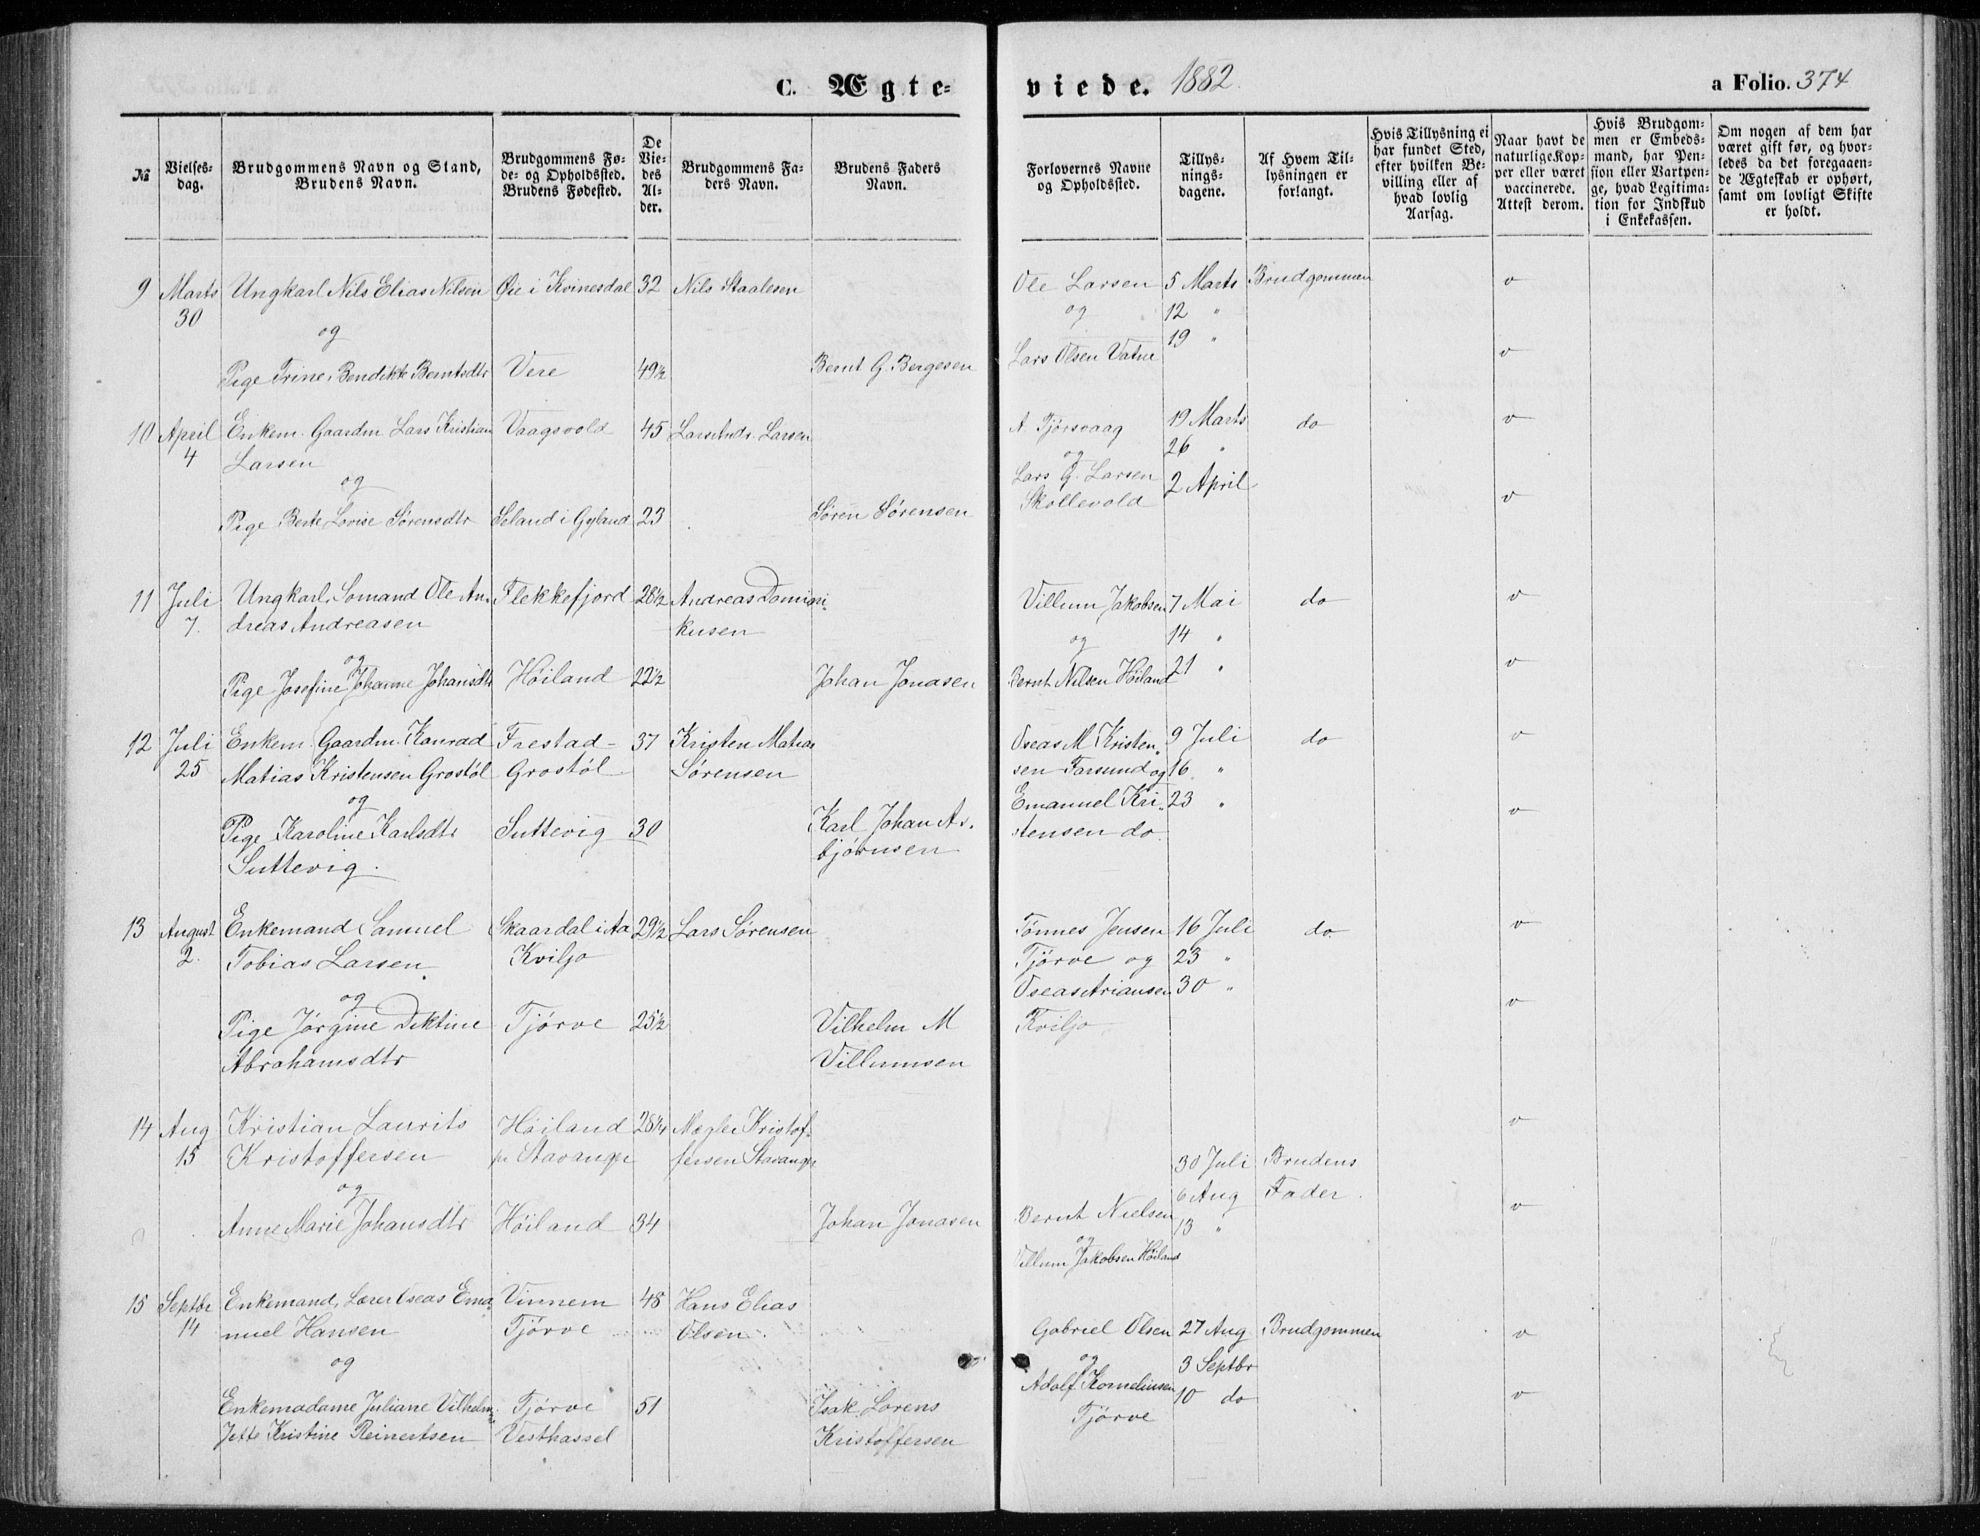 C. Ægte-
viede. 1882.
a Folio. 374
№
Vielses-
dag.
Brudgommens Navn og Stand,
Brudens Navn.
Brudgommens Fø-
de- og Opholdssted.
Brudens Fødested.
De
Vie-
des
Al-
der.
Brudgommens Fa-
ders Navn.
Brudens Faders
Navn.
Forlovernes Navne
og Opholdssted.
Tillys-
nings-
dagene.
Af Hvem Til-
lysningen er
forlangt.
Hvis Tillysning ei
har fundet Sted,
efter hvilken Be-
villing eller af
hvad lovlig
Aarsag.
Naar havt de
naturlige Kop-
per eller været
vaccinerede.
Attest derom.
Hvis Brudgom-
men er Embeds-
mand, har Pen-
sion eller Vartpen-
ge, hvad Legitima-
tion for Indskud
i Enkekassen.
Om nogen af dem har
været gift før, og hvor-
ledes da det foregaaen-
de Ægteskab er ophørt,
samt om lovligt Skifte
er holdt.
9 Marts Ungkarl Nils Elias Nilsen Øie i Kvinesdal 32 Nils Staalesen Ole Larsen 5 Marts Brudgommen v
30 og og 12 "
19 "
Pige Trine Bendikte Berntsdtr Vere 49½ Bernt G. Bergesen Lars Olsen Vatne v
10 April Enkem. Gaardm Lars Kristian Vaagsvold 45 Lars Andr. Larsen A Tjørsvaag 19 Marts do v
4 Larsen og 26 "
og Lars G. Larsen 2 April
Skollevold v
Pige Berte Lovise Sørensdtr Seland i Gyland 23 Søren Sørensen
11 Juli Ungkarl, Sømand Ole An- Flekkefjord 28½ Andreas Villum Jakobsen 7 Mai do v
7. dreas Andreasen kusen og 14 "
og
Pige Josefine Johanne Johansdtr Høiland 22½ Johan Jonasen Bernt Nilsen Høiland 21 " v
12 Juli Enkem. Gaardm. Konrad Frestad- 37 Kristen Matias Oseas M Kristen- 9 Juli do v
25 Matias Kristensen Grostøl Grostøl Sørensen sen Farsund og 16 "
og Emanuel Kri- 23 " v
Pige Karoline Karlsdtr Suttevig 30 Karl Johan As- stensen do
Suttevig. bjørnsen
13 August Enkemand Samuel Skaardal i Aa 29½ Lars Sørensen Tønnes Jensen 16 Juli do. v
2. Tobias Larsen Kviljo Tjørve og 23 "
og Oseas Ariansen 30 " v
Pige Jørgine Diktine Tjørve 25½ Vilhelm M Kviljo
Abrahamsdtr Villumsen
14 Aug Kristian Laurits Høiland 28¼ Mægler Kristof- v
15 Kristoffersen Stavanger fersen Stavanger 30 Juli Brudens
og 6 Aug Fader.
Anne Marie Johansdtr Høiland 34 Johan Jonasen Bernt Nielsen 13 " v
og
Villum Jakobsen Høiland
15 Septbr Enkemand, Lærer Oseas Ema- Vinnem 48 Hans Elias
14 nuel Hansen Tjørve Olsen. Gabriel Olsen 27 Aug. Brudgommen v
og og 3 Septbr
Enkemadame Juliane Vilhelm- Tjørve 51 Isak Lorens Adolf Kornelinsen 10 do v
Jette Kristine Reinertsen Vesthassel Kristoffersen Tjørve